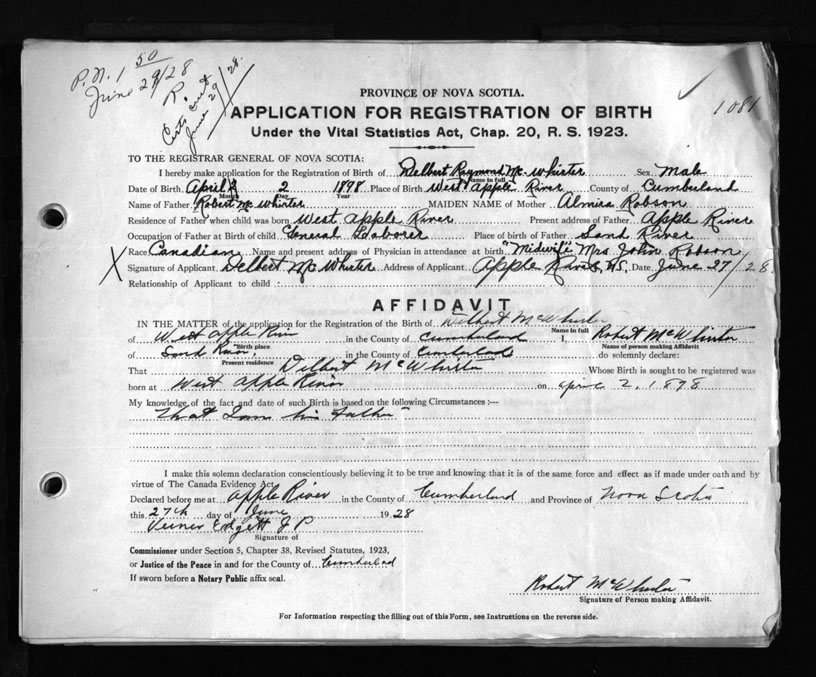 P.N. 1 50
June 29/28
R.
Certs sent
June 29/28.
1081
PROVINCE OF NOVA SCOTIA.
APPLICATION FOR REGISTRATION OF BIRTH
Under the Vital Statistics Act, Chap. 20, R. S. 1923.
TO THE REGISTRAR GENERAL OF NOVA SCOTIA:
I hereby make application for the Registration of Birth of Delbert Raymond Mc Whirter Sex Male
Name in full
Date of Birth April 2 1898 Place of Birth West Apple River County of Cumberland
Month Year
Name of Father Robert Mc Whirter MAIDEN NAME of Mother Almira Robson
Residence of Father when child was born West Apple River Present address of Father Apple River
Occupation of Father at Birth of child General Laborer Place of birth of Father Sand River
X Race Canadian Name and present address of Physician in attendance at birth "Midwife" Mrs John Robson
Signature of Applicant Delbert Mc Whirter Address of Applicant Apple River N.S. Date June 27/28.
Relationship of Applicant to child :
AFFIDAVIT
IN THE MATTER of the application for the Registration of the Birth of Delbert McWhirter
Name in full
of West Apple River in the County of Cumberland I, Robert McWhirter
Birth place Name of person making Affidavit
of Sand River, in the County of Cumberland do solemnly declare:
Present residence
That Delbert McWhirter Whose Birth is sought to be registered was
born at West Apple River on April 2, 1898
My knowledge of the fact and date of such Birth is based on the following Circumstances :—
That I am his Father
I make this solemn declaration conscientiously believing it to be true and knowing that it is of the same force and effect as if made under oath and by
virtue of The Canada Evidence Act.
Declared before me at Apple River in the County of Cumberland and Province of Nova Scotia
this 27th day of June 1928
Verner Edgett J P
Signature of
Commissioner under Section 5, Chapter 38, Revised Statutes, 1923,
or Justice of the Peace in and for the County of Cumberland
If sworn before a Notary Public affix seal.
Robert McWhirter
Signature of Person making Affidavit.
For Information respecting the filling out of this Form, see Instructions on the reverse side.